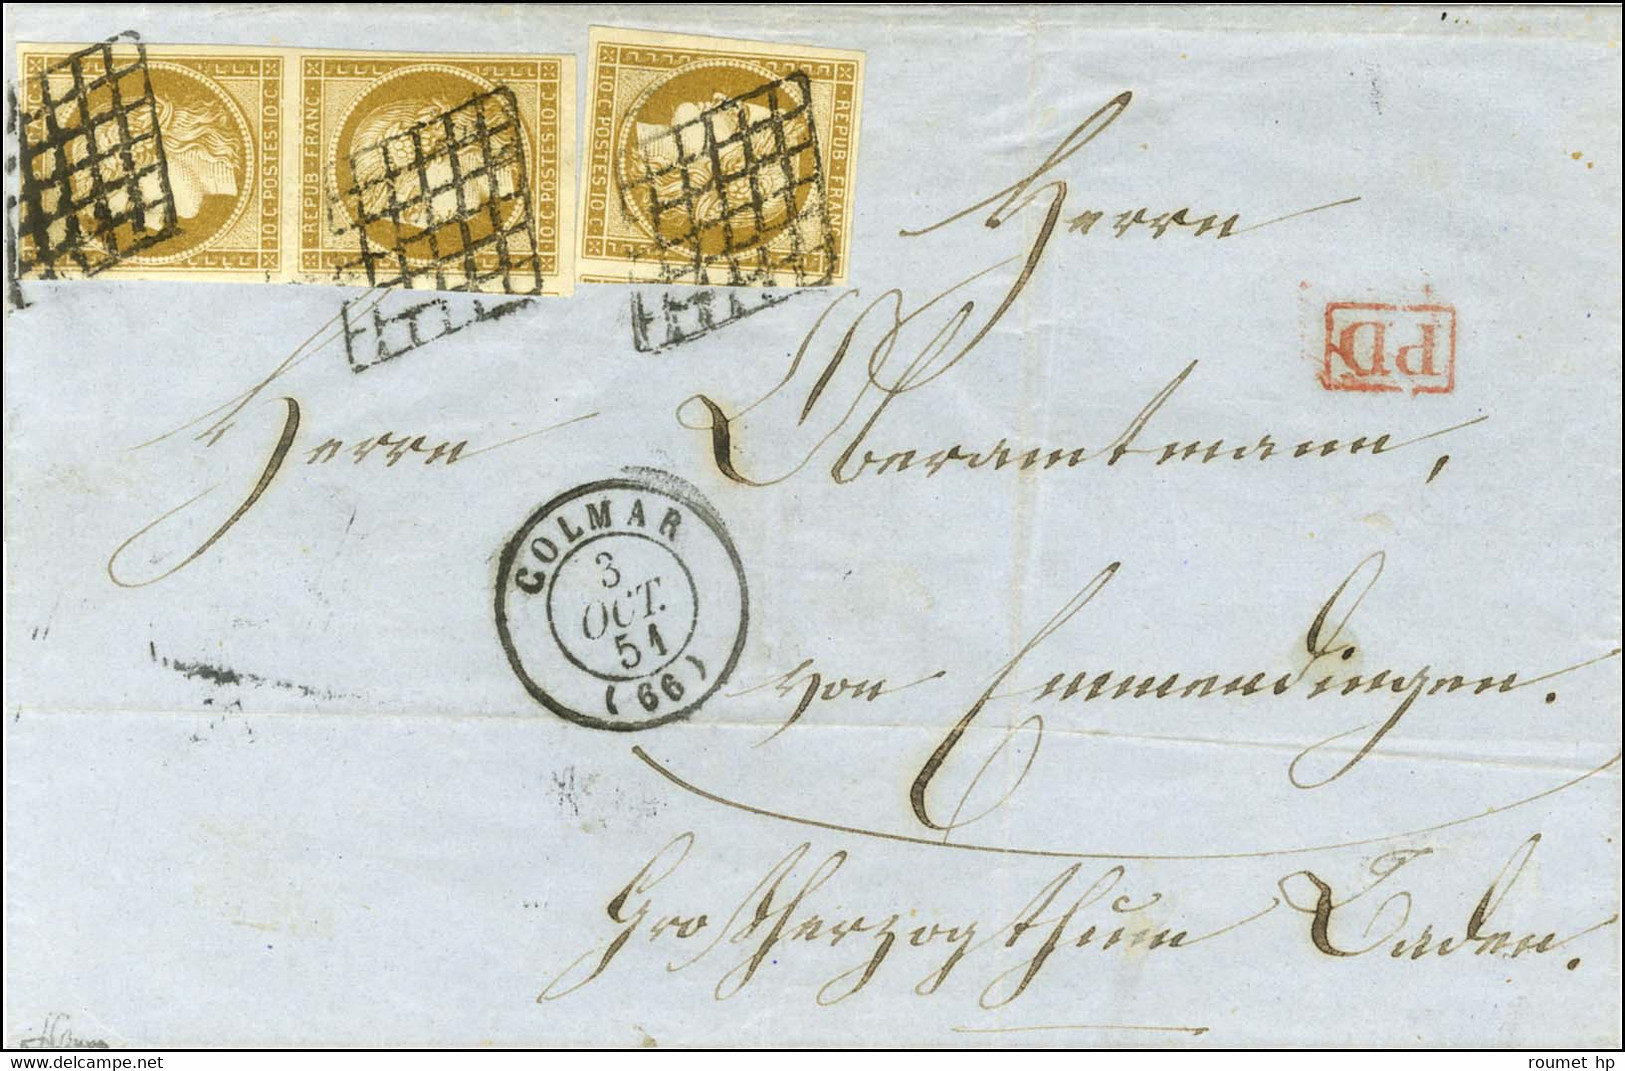 REPUB·FRANC·
10 C POSTES 10 C
REPUB·FRANC·
10 C POSTES 10 C
REPUB·FRANC
10 C POSTES 10 C
Herrn
PD
Herrn Oberamtmann,
COLMAR
3
OCT.
51
(66)
von Emmendingen.
Großherzogthum Baden.
roumet hp